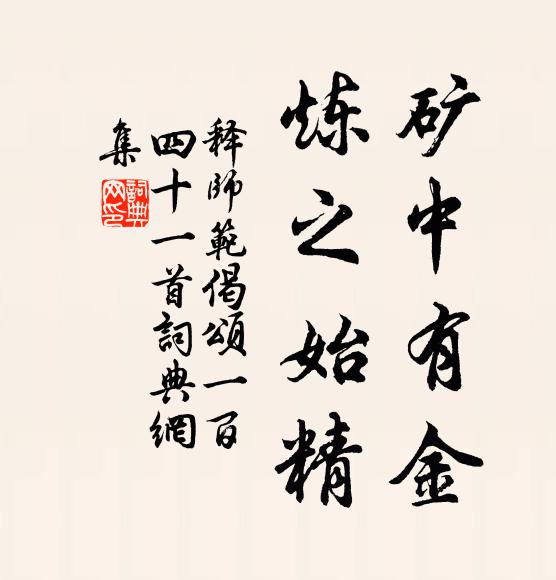 矿中有金
炼之始精
释师範偈頌一百
四十一首詞典網
集
詞典
网印